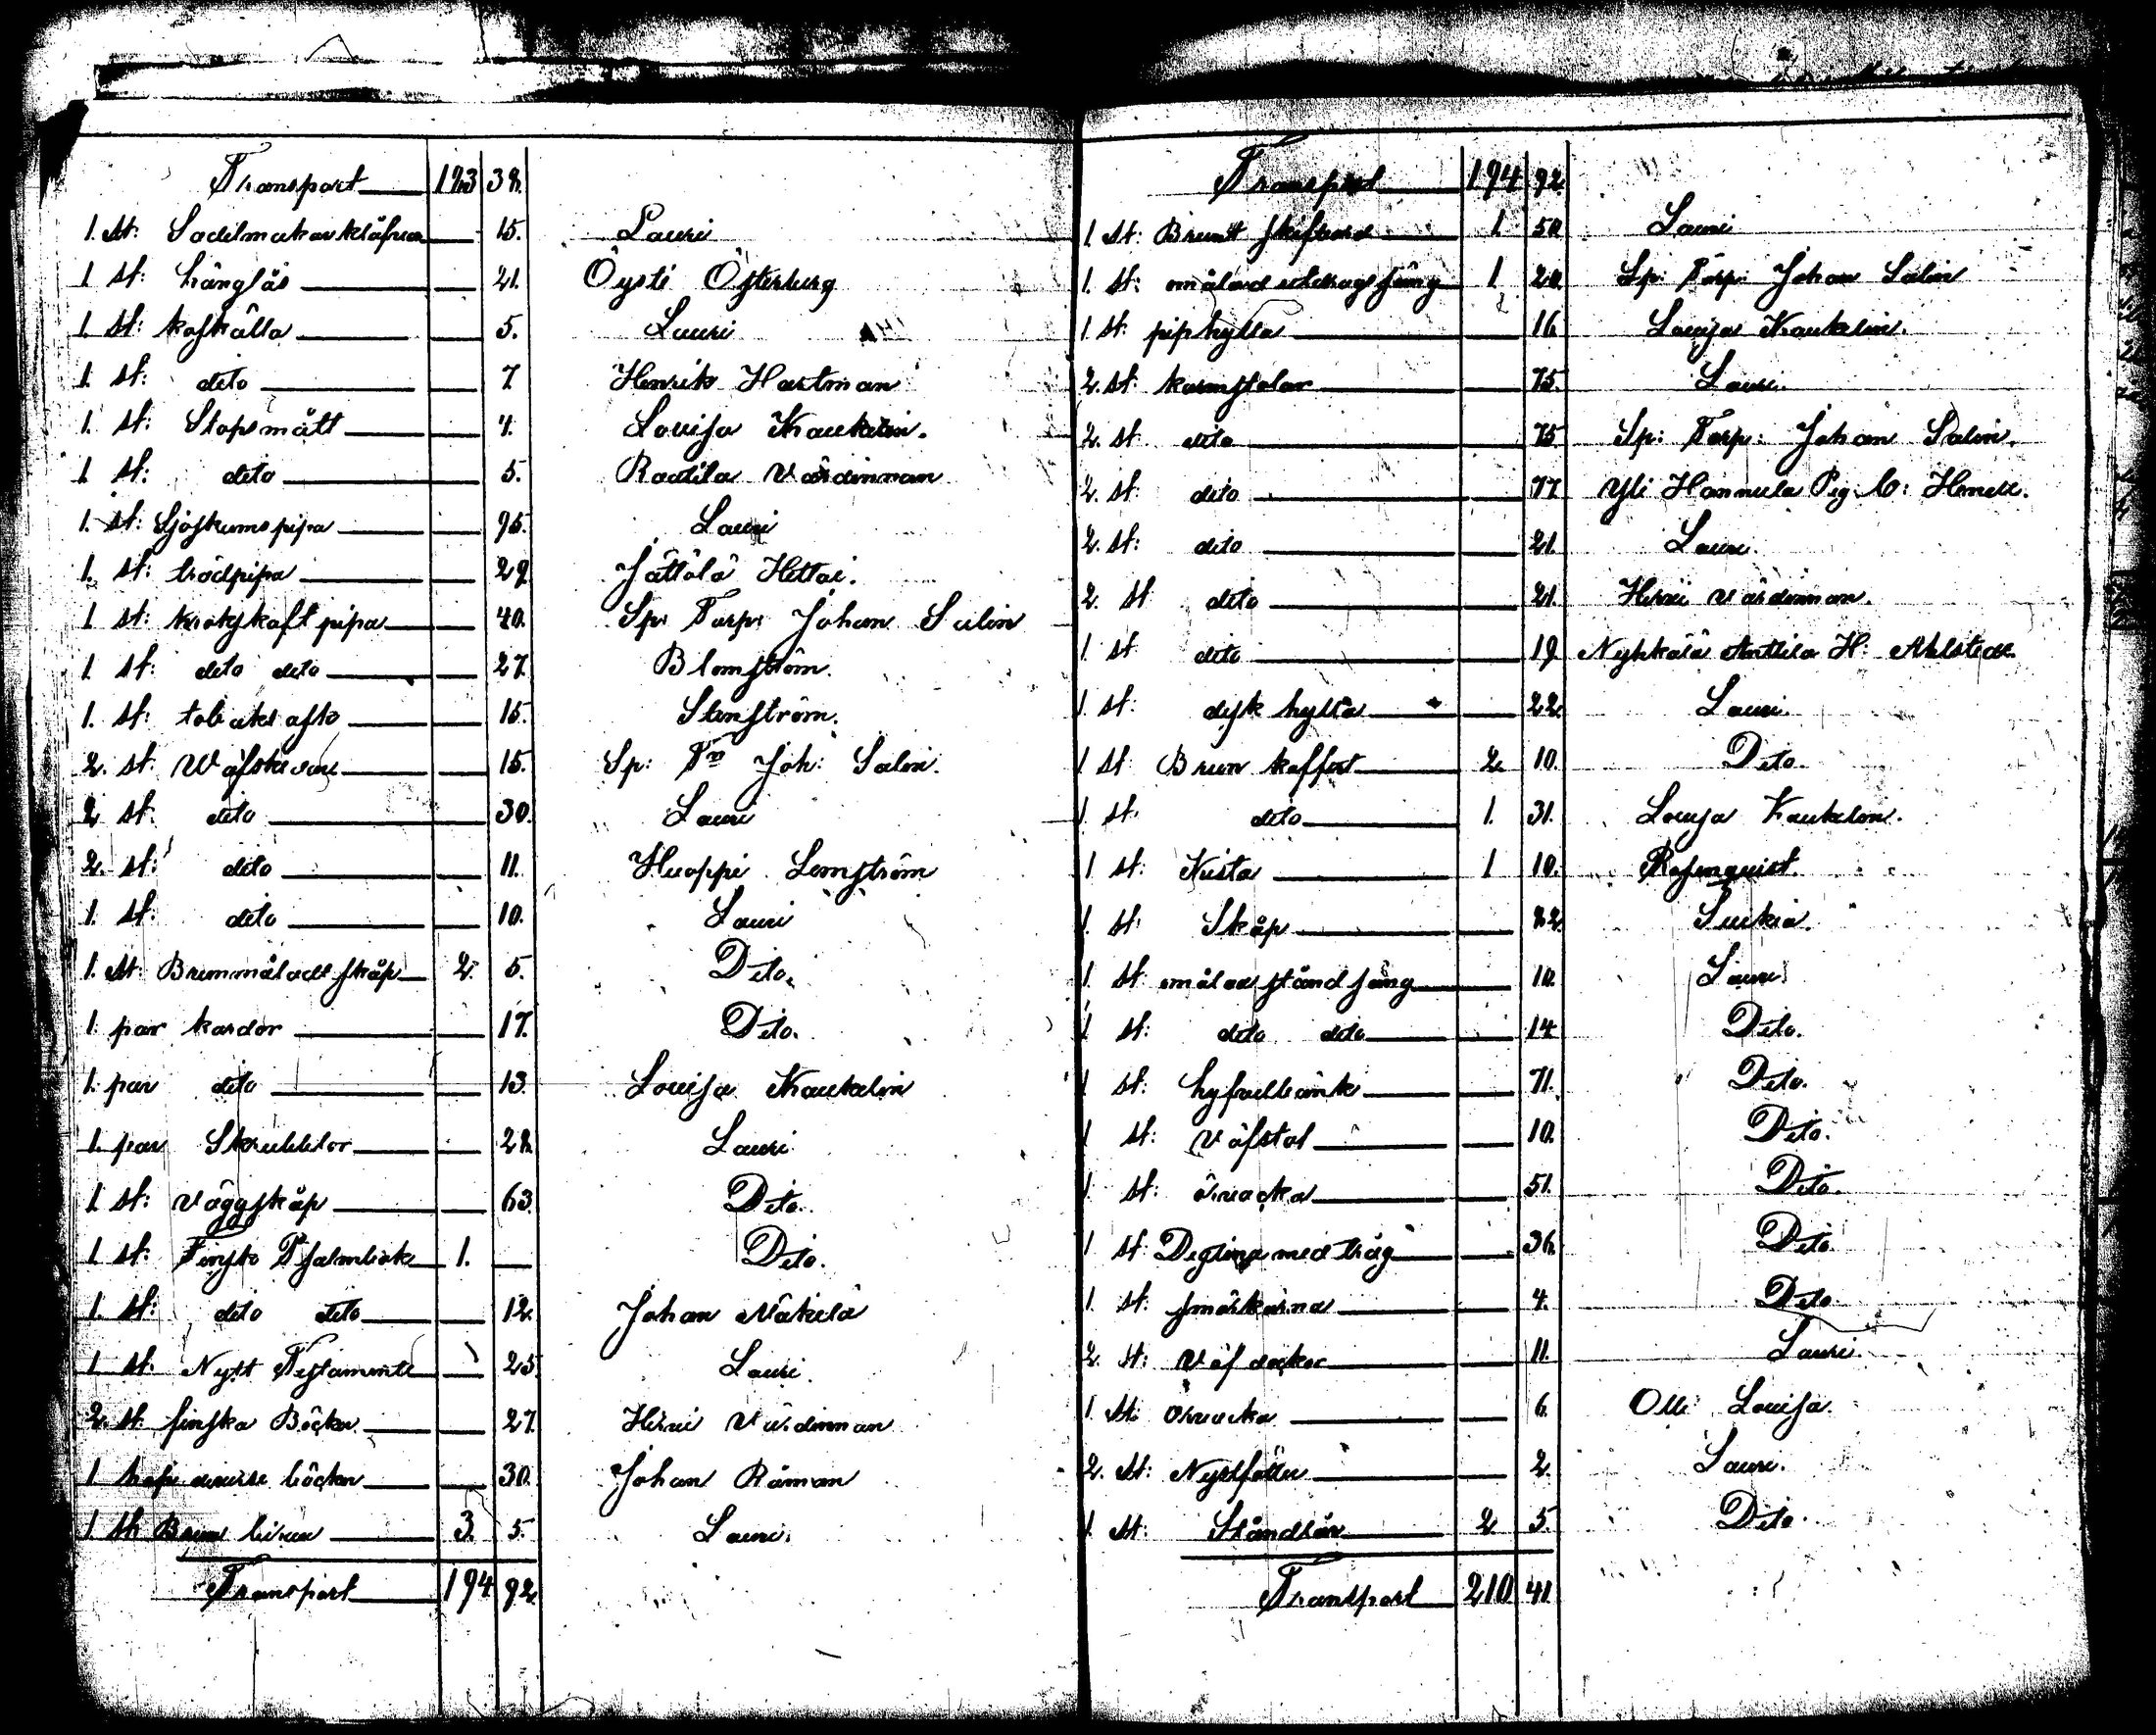 Transport 183 38.
1. st: Sadelmakarklåfvar 15. Lauri
1 st: hänglås 21. Öysti Österberg
1. st: kafkälla 5. Lauri
1. st: dito 7 Henrik Hartman
1. st: Stopsmått 4. Lovisa Kaukelin.
1 st: dito 5. Raitila Värdinnan
1. st: Sjöskumspipa 95. Lauri
1. st: trädpipa 29. Jättälä Hettai.
1 st: krokskaft pipa 40. Sp: Torp: Johan Salin
1 st: dito dito 27. Blomström.
1. st: tobaks ask 15. Stenström.
2. st: Väfskedar 15. Sp: Tp Joh: Salin.
2 st: dito 30. Lauri
2. st: dito 11. Huoppi Lemström
1 st: dito 10. Lauri
1. st: Brunmåladt skåp 2. 5. Dito.
1 par kardor 17. Dito.
1. par dito 13. Lovisa Kaukelin
1. par Skrubblor 28. Lauri
1 st: väggskåp 63. Dito.
1 st: Finsk Psalmbok 1. Dito.
1. st: dito dito 12. Johan Mäkelä
1 st: Nytt Testamente 25. Lauri.
2. st: finska Böcker 27. Hirvi Värdinnan
1 hop diverse böcker 30. Johan Råman
1 st: Brun 3. 5. Lauri.
Transport 194 92.
Transport 194 92
1. st: Brunt skifbord 1. 50. Lauri
1. st: omålad utdragssäng 1 20. Sp: Torp: Johan Salin
1 st: piphylla 16. Lovisa Kaukelin.
2. st: karmstolar 75. Lauri.
2. st dito 75. Sp: Torp: Johan Salin.
2. st: dito 77 Yli Hannula Pig.
2. st: dito 21. Lauri.
2. st dito 21. Hirvi värdinnan.
1 st dito 19 Nyhkälä Anttila H: Ahlstedt.
1 st: disk hylla 22. Lauri.
1 st: Brun koffert 2. 10. Dito.
1 st. dito 1. 31. Lovisa Kaukelin.
1 st: Kista 1 10. Rosenquist.
1 st: Skåp 22 Suikia.
1 st omålad ståndsäng 10. Lauri
1 st: dito dito 14 Dito.
1 st: hyfvelbänk 71. Dito.
1 st: väfstol 10. Dito.
1 st: 51. Dito.
1 st: Degtina med tråg 36. Dito.
1. st: smörkärna 4. Dito.
2. st: 11. Lauri.
1. st: 6. Olli Lovisa.
2. st: Nystfötter 2. Lauri.
1. st: Ståndkär 2 5. Dito.
Transport 210 41